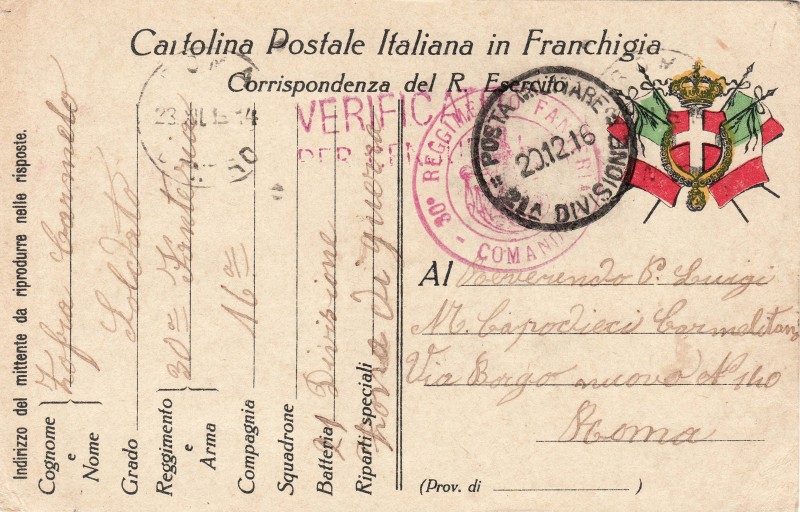 Cartolina Postale Italiana in Franchigia
Corrispondenza del R. Esercito
VERIFICAT
PER CEN
30º REGGIMENTO FANTERIA
COMANDO
POSTA MILITARE
21A DIVISIONE
20.12.16
ROMA
23.XII.16-14
Indirizzo del mittente da riprodurre nelle risposte.
Cognome e Nome Carmelo
Grado Soldato
Reggimento e Arma 30º Fanteria
Compagnia 16ª
Squadrone
Batteria 21 Divisione
Riparti speciali Zona di guerra
Al Reverendo P. Luigi
M. Capodieci Carmelitano
Via Borgo nuovo Nº 110
Roma
(Prov. di )